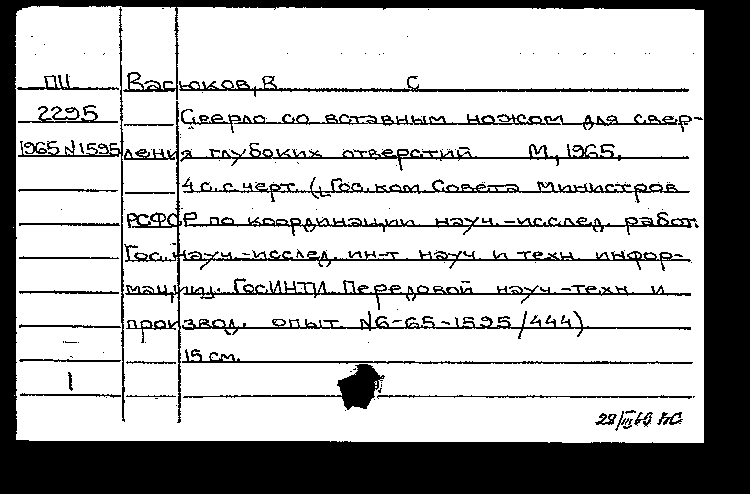 ПЦ Васюков, В С
2295 Сверло со вставным ножом для свер-
1965 N 1595 ления глубоких отверстий. М., 1965.
4 с. с черт. (Гос. ком. Совета министров
РСФСР по координации науч.-исслед. работ
Гос. науч.-исслед. ин-т науч. и техн. инфор-
мации. ГосИНТИ. Передовой науч.-техн. и
производ. опыт. N6-65-1595/444)
15 см.
1